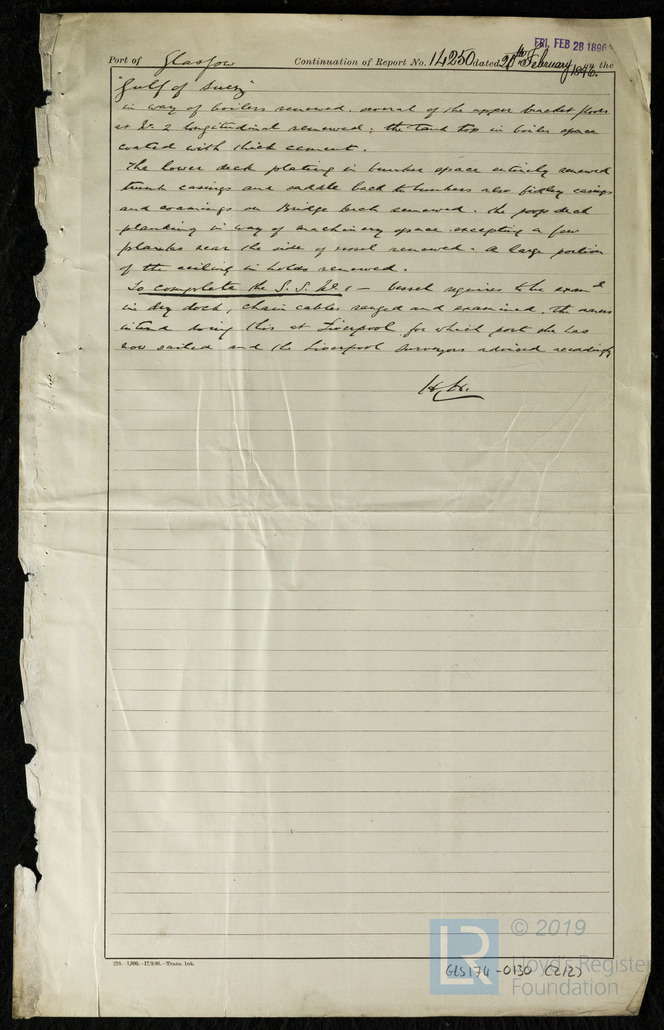 FRI. FEB 28 1896
Port of Glasgow Continuation of Report No. 14250 dated 20th February 1896. on the
"Gulf of Suez"
in way of boilers renewed. several of the upper bracket floors
at No. 2 longitudinal renewed; the tank top in boiler space
coated with thick cement.
The lower deck plating in bunker space entirely renewed
trunk casings and saddle back to bunkers also fidley casings
and coamings on Bridge Deck renewed. the poop deck
planking in way of machinery space excepting a few
planks near the side of vessel renewed. A large portion
of the ceiling in holds renewed.
To complete the S. S. No. 1 – vessel requires to be exam'd
in dry dock, chain cables ranged and examined. the owners
intend doing this at Liverpool for which port she has
now sailed and the Liverpool Surveyors advised accordingly
H.H.
250.–1,000.–17/9/95.–Trans. Ink.
LR © 2019
Lloyd's Register
Foundation
GLS174-0130 (2/2)